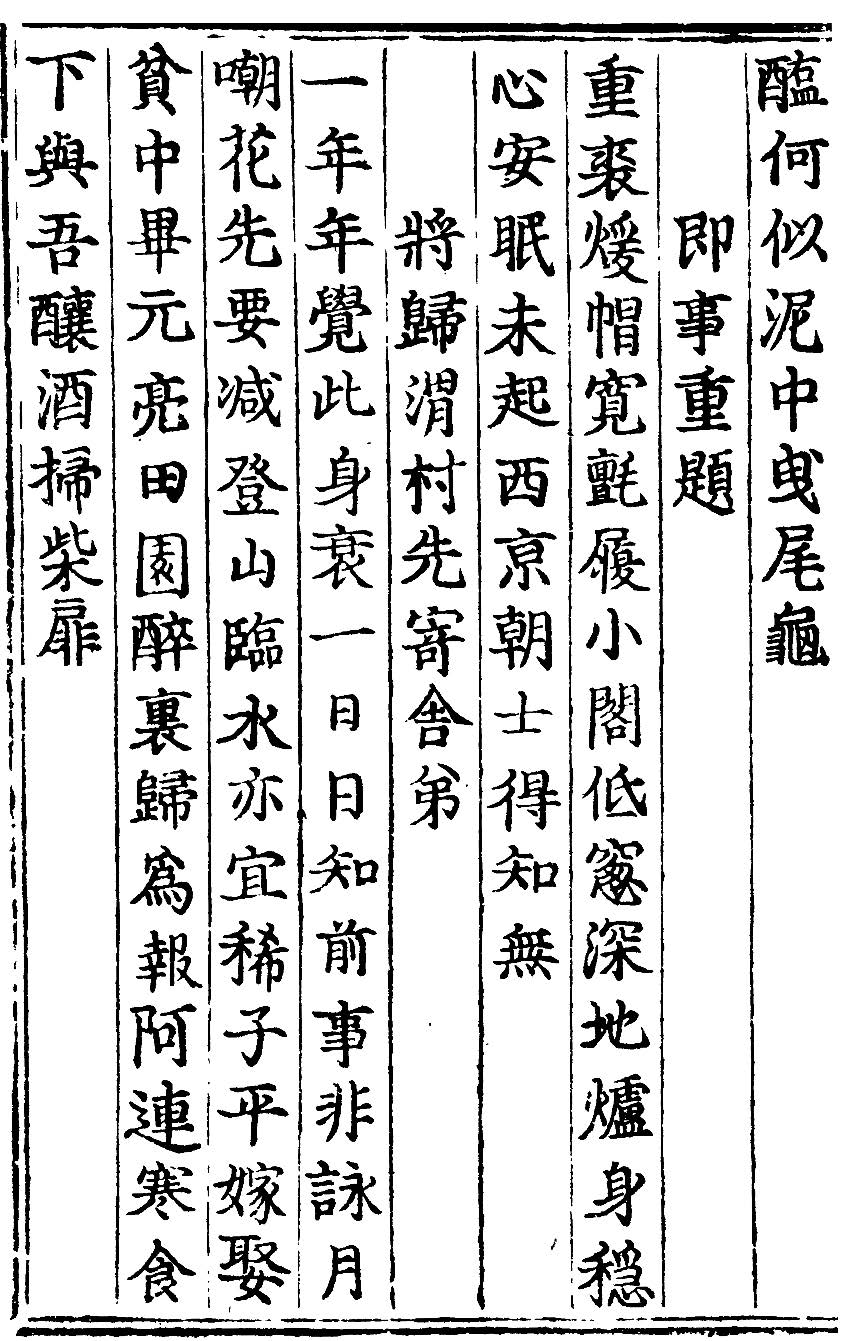 醢何似泥中曳尾龜
即事重題
重裘煖帽寛氈履小閣低窻深地爐身穩
心安眠未起西京朝士得知無
將歸渭村先寄舍弟
一年年覺此身衰一日日知前事非詠月
嘲花先要減登山臨水亦宜稀子平嫁娶
貧中畢元亮田園醉裏歸爲報阿連寒食
下與吾釀酒掃柴扉